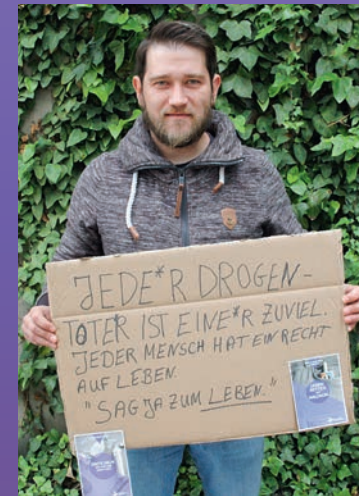 JEDE*R DROGEN-
TOTE*R IST EINE*R ZUVIEL.
JEDER MENSCH HAT EIN RECHT
AUF LEBEN.
"SAG JA ZUM LEBEN."